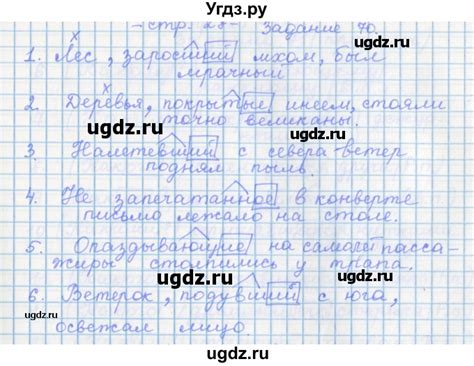 Угдз.ру
стр. 28 - Задание 70.
1. Лес, заросший мхом, был
мрачный
2. Деревья, покрытые инеем, стояли
точно великаны.
3. Налетевший с севера ветер
поднял пыль.
4. Не запечатанное в конверте
письмо лежало на столе.
5. Опаздывающие на самолет пасса-
жиры столпились у трапа.
6. Ветерок, подувший с юга,
освежал лицо.
ugdz.ru
ugdz.ru
ugdz.ru
ugdz.ru
ugdz.ru
ugdz.ru
ugdz.ru